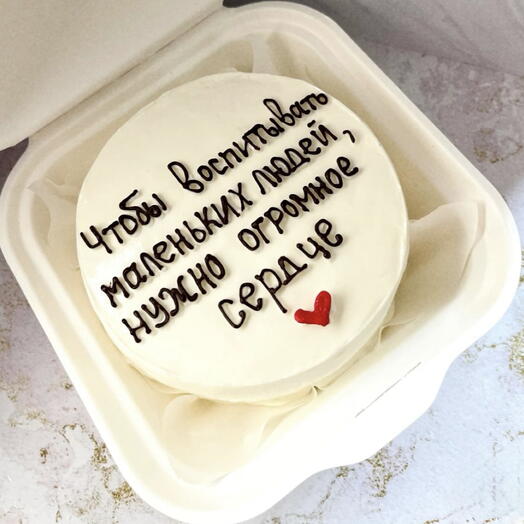 Чтобы воспитывать
маленьких людей,
нужно огромное
сердце